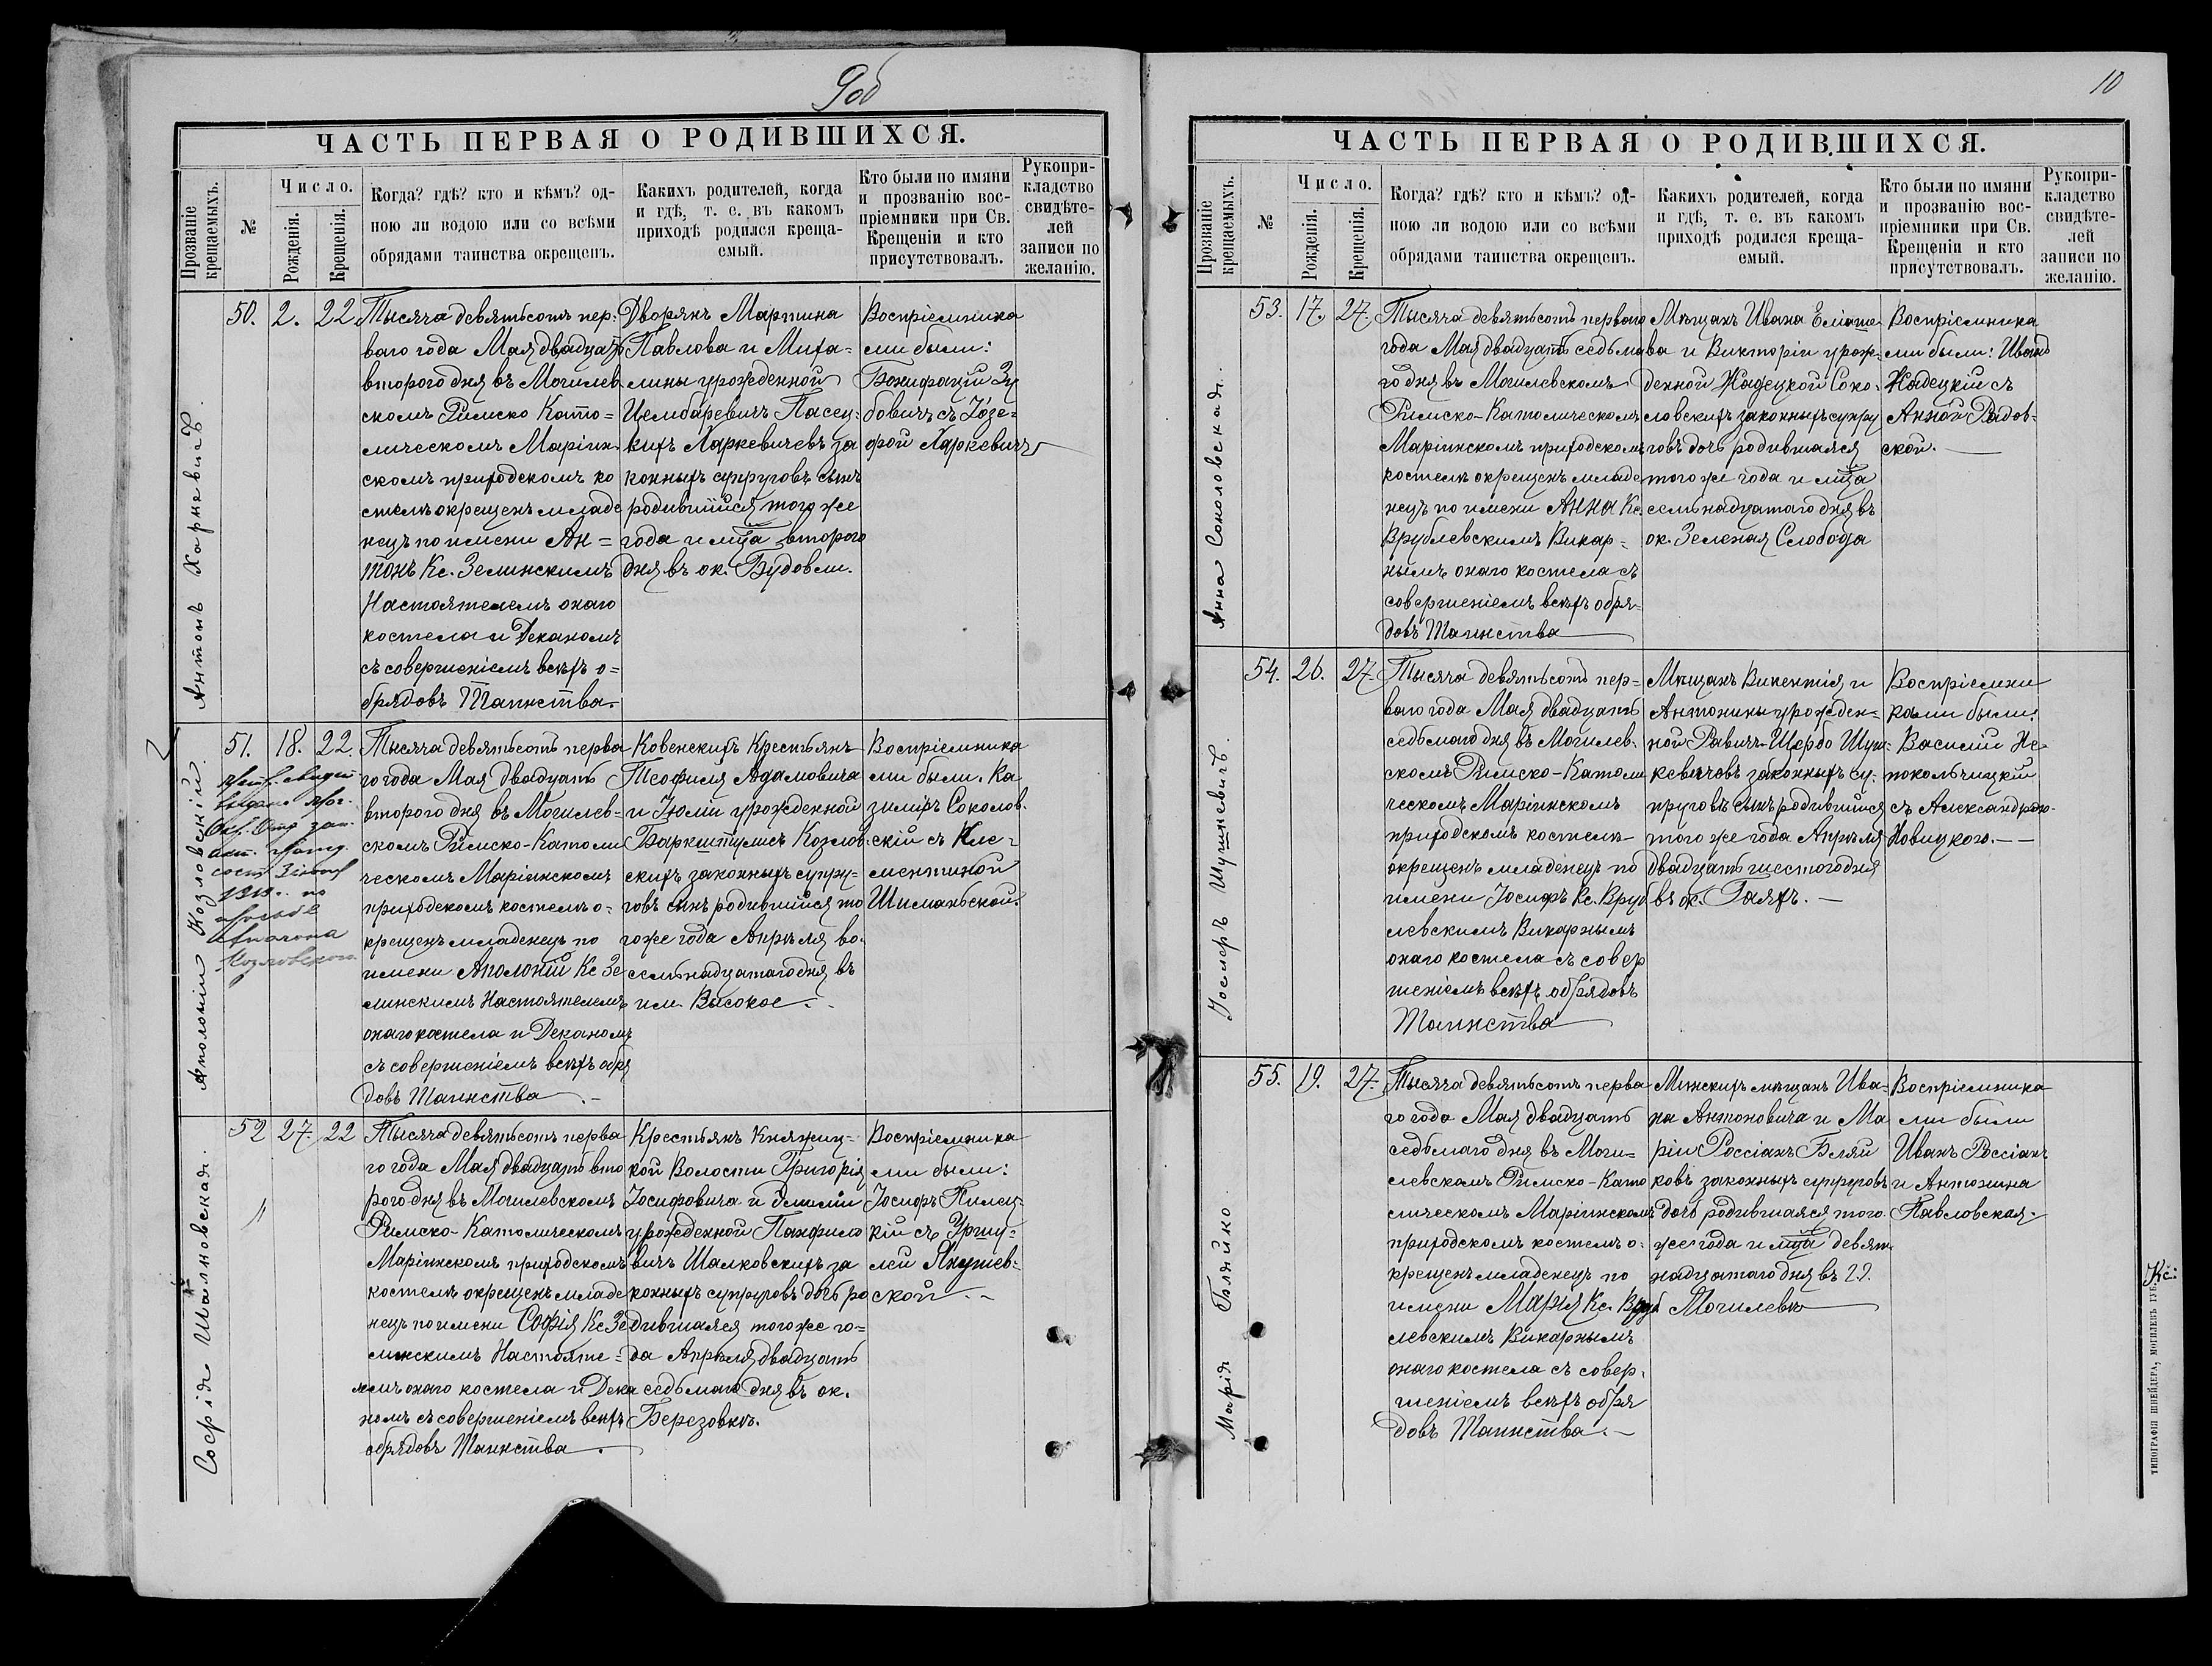 9об
ЧАСТЬ ПЕРВАЯ О РОДИВШИХСЯ.
Прозваніе крещаемыхъ.
№
Число.
Рожденія.
Крещенія.
Когда? гдѣ? кто и кѣмъ? од-
ною ли водою или со всѣми
обрядами таинства окрещенъ.
Какихъ родителей, когда
и гдѣ, т. е. въ какомъ
приходѣ родился креща-
емый.
Кто были по имяни
и прозванію вос-
пріемники при Св.
Крещеніи и кто
присутствовалъ.
Рукопри-
кладство
свидѣте-
лей
записи по
желанію.
Антонъ Харкевичъ.
50. 2. 22
Тысяча девятьсотъ пер-
ваго года Мая двадцать
второго дня въ Могилев-
скомъ Римско Като=
лическомъ Маріин-
скомъ приходскомъ ко
стелѣ окрещенъ младе
нецъ по имени Ан=
тонъ Кс. Зелинскимъ
Настоятелемъ онаго
костела и Деканомъ
съ совершеніемъ всѣхъ о=
брядовъ Таинства.
Дворянъ Мартина
Павлова и Миха=
лины урожденной
Цембаревичъ Пасец-
кихъ Харкевичевъ за
конныхъ супруговъ сынъ
родившійся того же
года и мца второго
дня въ ок. Будовли.
Воспріемника
ми были:
Бонифацій Зу
бовичъ съ Іозе=
фой Харкевичъ
Аполоній Козловскій.
51. 18. 22
Тысяча девятьсотъ перва
го года Мая двадцать
второго дня въ Могилев=
скомъ Римско-Католи
ческомъ Маріинскомъ
приходскомъ костелѣ о=
крещенъ младенецъ по
имени Аполоній Кс Зе
линскимъ Настоятелемъ
онаго костела и Деканомъ
съ совершеніемъ всѣхъ обря
довъ Таинства.-
Ковенскихъ Крестьянъ
Теофиля Адамовича
и Юліи урожденной
Баркштулисъ Козлов-
скихъ законныхъ супру=
говъ сынъ родившійся то
гоже года Апрѣля во-
семьнадцатаго дня въ
им. Высокое.
Воспріемника
ми были. Ка
зиміръ Соколов-
скій съ Кле-
ментиной
Шимановской.
Софія Шалковская.
52 27. 22
Тысяча девятьсотъ перва
го года Мая двадцать вто
рого дня въ Могилевскомъ
Римско-Католическомъ
Маріинскомъ приходскомъ
костелѣ окрещенъ младе
нецъ по имени Софія Кс Зе
линскимъ Настояте=
лемъ онаго костела и Дека
номъ съ совершеніемъ всѣхъ
обрядовъ Таинства.
Крестьянъ Княжиц-
кой Волости Григорія
Іосифовича и Эмиліи
урожденной Панфило
вичъ Шалковскихъ за
конныхъ супруговъ дочь ро
дившаяся того же го=
да Апрѣля двадцать
седьмаго дня въ ок.
Березовкѣ.
Воспріемника
ми были:
Іосифъ Пилец-
кій съ Уршу=
лей Янушев-
ской.-
10
ЧАСТЬ ПЕРВАЯ О РОДИВШИХСЯ.
Прозваніе крещаемыхъ.
№
Число.
Рожденія.
Крещенія.
Когда? гдѣ? кто и кѣмъ? од-
ною ли водою или со всѣми
обрядами таинства окрещенъ.
Какихъ родителей, когда
и гдѣ, т. е. въ какомъ
приходѣ родился креща-
емый.
Кто были по имяни
и прозванію вос-
пріемники при Св.
Крещеніи и кто
присутствовалъ.
Рукопри-
кладство
свидѣте-
лей
записи по
желанію.
Анна Соколовская.
53. 17. 27.
Тысяча девятьсотъ перваго
года Мая двадцать седьма
го дня въ Могилевскомъ
Римско-Католическомъ
Маріинскомъ приходскомъ
костелѣ окрещенъ младе
нецъ по имени Анна Кс.
Врублевскимъ Викар=
нымъ онаго костела съ
совершеніемъ всѣхъ обря-
довъ Таинства
Мѣщанъ Ивана Еліаше
ва и Викторіи урож-
денной Жадецкой Соко-
ловскихъ законныхъ супру
говъ дочь родившаяся
того же года и мца
семьнадцатаго дня въ
ок. Зеленая Слобода
Воспріемника
ми были: Иванъ
Жадецкій съ
Анной Радов-
ской.
Іосифъ Шушкевичъ.
54. 26. 27
Тысяча девятьсотъ пер=
ваго года Мая двадцать
седьмаго дня въ Могилев-
скомъ Римско-Католи
ческомъ Маріинскомъ
приходскомъ костелѣ
окрещенъ младенецъ по
имени Іосифъ Кс. Вруб
левскимъ Викарнымъ
онаго костела съ совер
шеніемъ всѣхъ обрядовъ
Таинства
Мѣщанъ Викентія и
Антонины урожден=
ной Равичъ-Щербо Шуш-
кевичовъ законныхъ су-
пруговъ сынъ родившійся
того же года Апрѣля
двадцать шестого дня
въ ок. Гаяхъ.-
Воспріемни
ками были:
Василій Не-
покольчицкій
съ Александрою
Новицкою.--
Марія Бляйко.
55. 19. 27.
Тысяча девятьсотъ перва
го года Мая двадцать
седьмаго дня въ Моги=
левскомъ Римско-Като
лическомъ Маріинскомъ
приходскомъ костелѣ о-
крещенъ младенецъ по
имени Марія Кс. Вруб
левскимъ Викарнымъ
онаго костела съ совер-
шеніемъ всѣхъ обря
довъ Таинства.-
Минскихъ мѣщанъ Ива=
на Антоновича и Ма
ріи Россіанъ Бляй
ковъ законныхъ супруговъ
дочь родившаяся того
же года и мца девят-
надцатаго дня въ г.
Могилевѣ
Воспріемника
ми были
Иванъ Россіанъ
и Антонина
Павловская.
ТИПОГРАФІЯ ШНЕЙДЕРА, МОГИЛЕВЪ ГУБ.